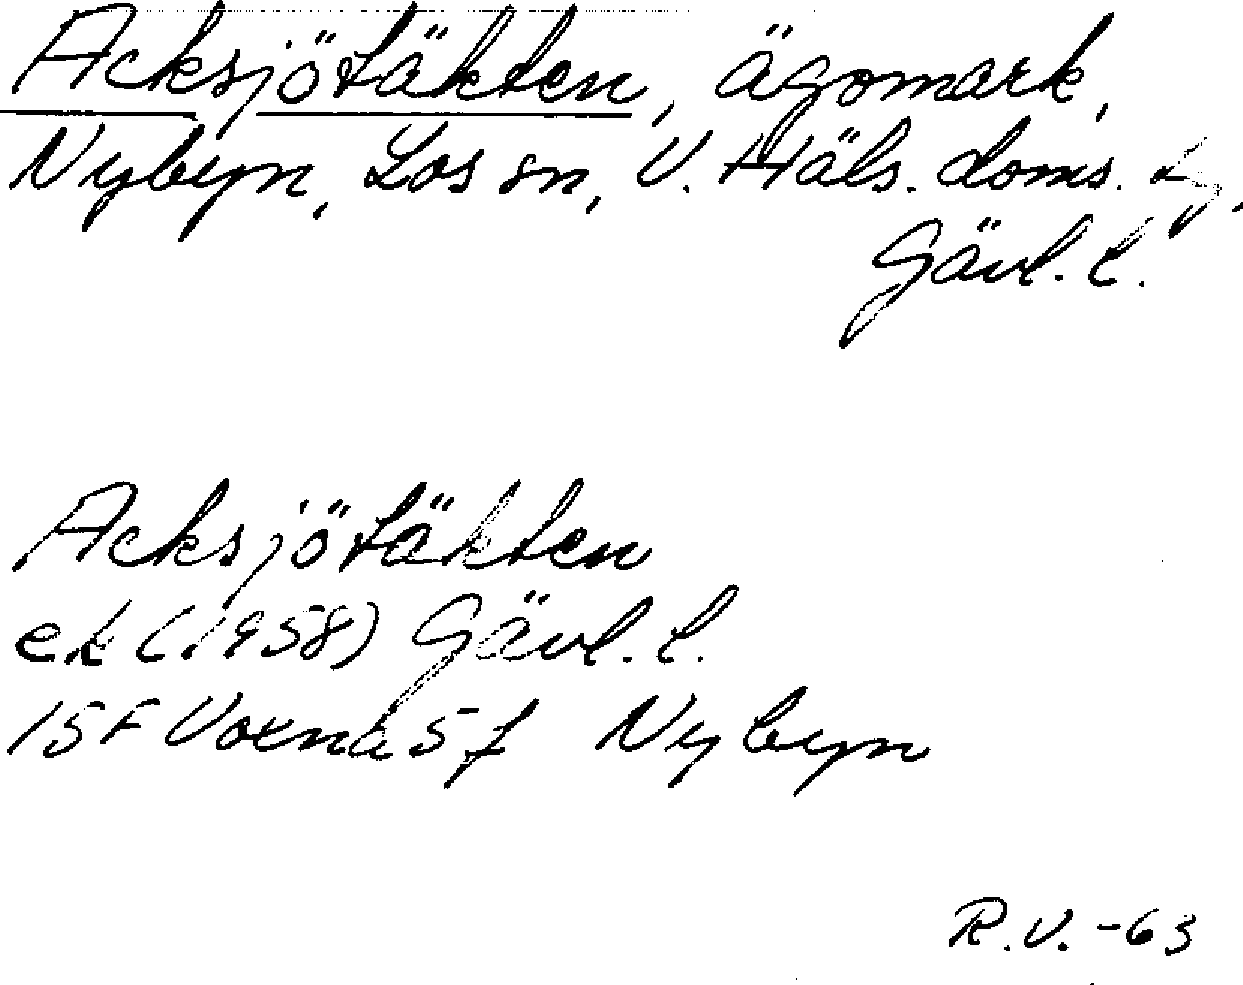 Acksjötäkten, ägomark,
Nybyn, Los sn, V. Häls. doms.
Gävl. l.
Acksjötäkten
ek (1958) Gävl. l.
15F Voxna 5f Nybyn
R.V. -63